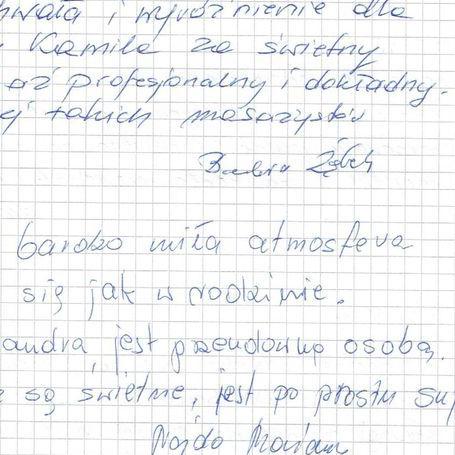 hwała i wyróżnienie dla
Kamila za świetny
aż profesjonalny i dokładny.
ej takich masażystów
bardzo miła atmosfera
się jak w rodzinie.
andra jest przeudowną osobą.
e są świetne, jest po prostu sup